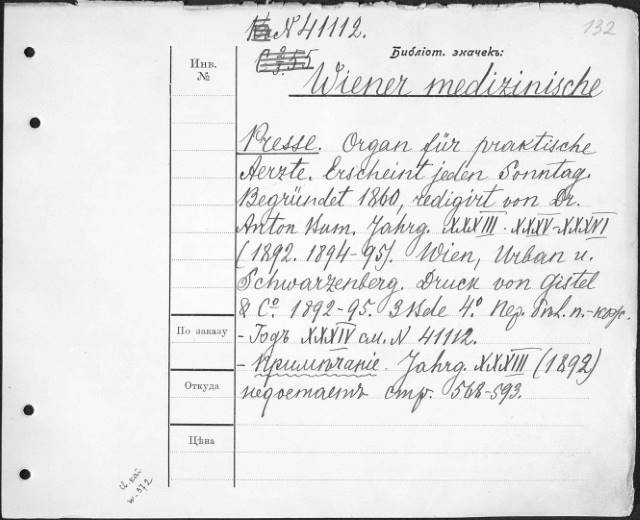 N 41112.
132
Библіот. значекъ:
Инв.
№
Wiener medizinische
Presse. Organ für praktische
Aerzte. Erscheint jeden Sonntag.
Begründet 1860, redigirt von Dr.
Anton Bum. Jahrg. XXXIII. XXXV-XXXVI
(1892. 1894-95). Wien, Urban u.
Schwarzenberg. Druck von Gistel
& Cº. 1892-95. 3 Bde 4º.
По заказу
- Годъ XXXIV см. N 41112.
- Примѣчаніе. Jahrg. XXXIII (1892)
Откуда
недостаетъ стр. 568-593.
Цѣна